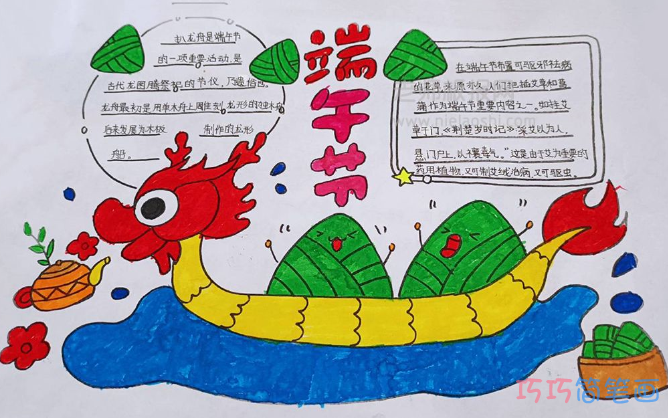 扒龙舟是端午节
的一项重要活动,是
古代龙图腾祭祀的节仪,乃遗俗也。
龙舟最初是用单木舟上雕刻龙形的独木舟
后来发展为木板 制作的龙形
船。
端午节
在端午节布置可驱邪祛病
的花草,来源亦久,人们把插艾草和菖
蒲作为端午节重要内容之一。如挂艾
草于门,《荆楚岁时记》采艾以为人,
悬门户上,以禳毒气。"这是由于艾为重要的
药用植物,又可制艾绒治病,又可驱虫。
巧巧简笔画